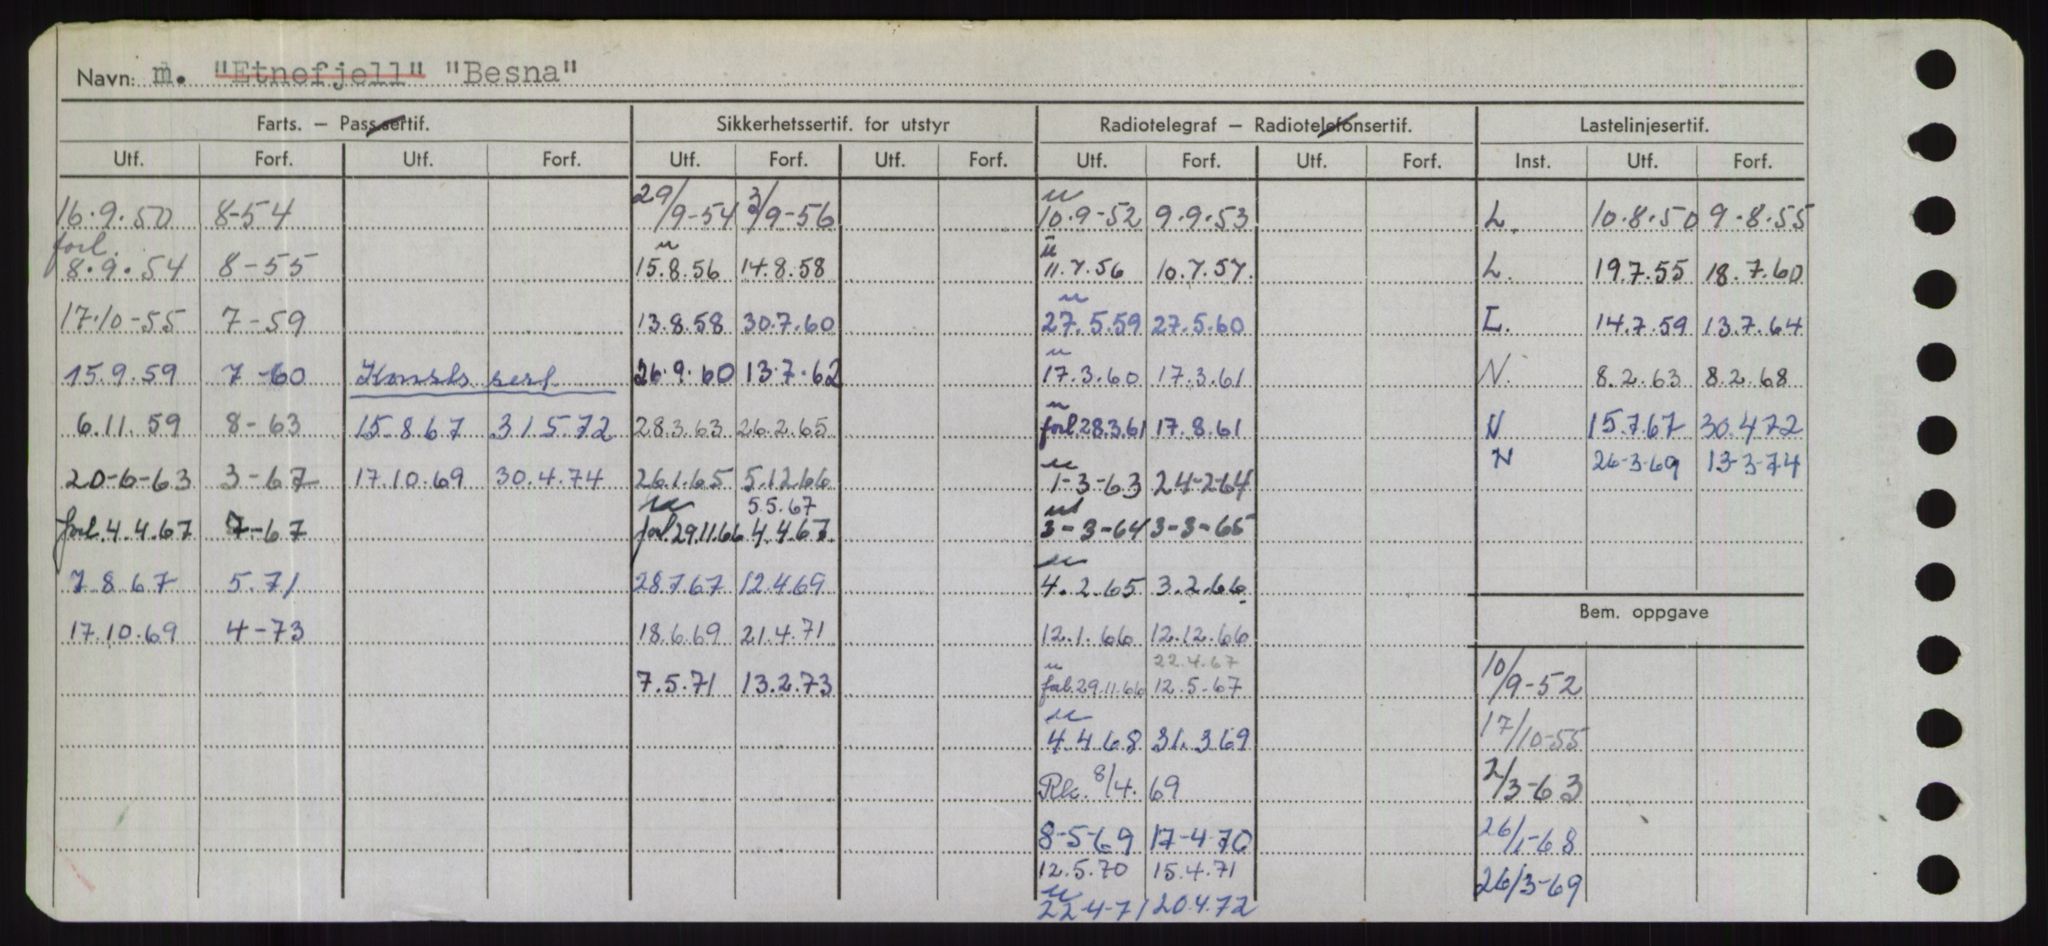 Navn: m. "Etnefjell" "Besna"
Farts. – Passsertif. Sikkerhetssertif. for utstyr Radiotelegraf – Radiotelefonsertif. Lastelinjesertif.
Utf. Forf. Utf. Forf. Utf. Forf. Utf. Forf. Utf. Forf. Utf. Forf. Inst. Utf. Forf.
16.9.50 8-54 29/9-54 3/9-56 u 10.9-52 9.9.53 L. 10.8.50 9.8.55
forl. 8.9.54 8-55 u 15.8.56 14.8.58 u 11.7.56 10.7.57. L. 19.7.55 18.7.60
17.10-55 7-59 13.8.58 30.7.60 u 27.5.59 27.5.60 L. 14.7.59 13.7.64
15.9.59 7-60 Konstr. sert 26.9.60 13.7.62 u 17.3.60 17.3.61 N. 8.2.63 8.2.68
6.11.59 8-63 15.8.67 31.5.72 28.3.63 26.2.65 u forl. 28.3.61 17.8.61 N 15.7.67 30.4.72
20-6-63 3-67 17.10.69 30.4.74 26.1.65 5.12.66 u 1-3-63 24-2-64 N 26-3-69 13-3-74
5.5.67
forl. 4.4.67 7-67 u forl. 29.11.66 4.4.67. u 3-3-64 3-3-65
7.8.67 5.71 28.7.67 12.4.69 u 4.2.65 3.2.66
Bem. oppgave
17.10.69 4-73 18.6.69 21.4.71 12.1.66 12.12.66
22.4.67
7.5.71 13.2.73 u forl. 29.11.66 12.5.67 10/9-52
u 4.4.68 31.3.69 17/10-55
Rk. 8/4.69 2/3-63
8-5-69 17-4-70 26/1-68
12.5.70 15.4.71 26/3-69
u 22-4-71 20.4.72